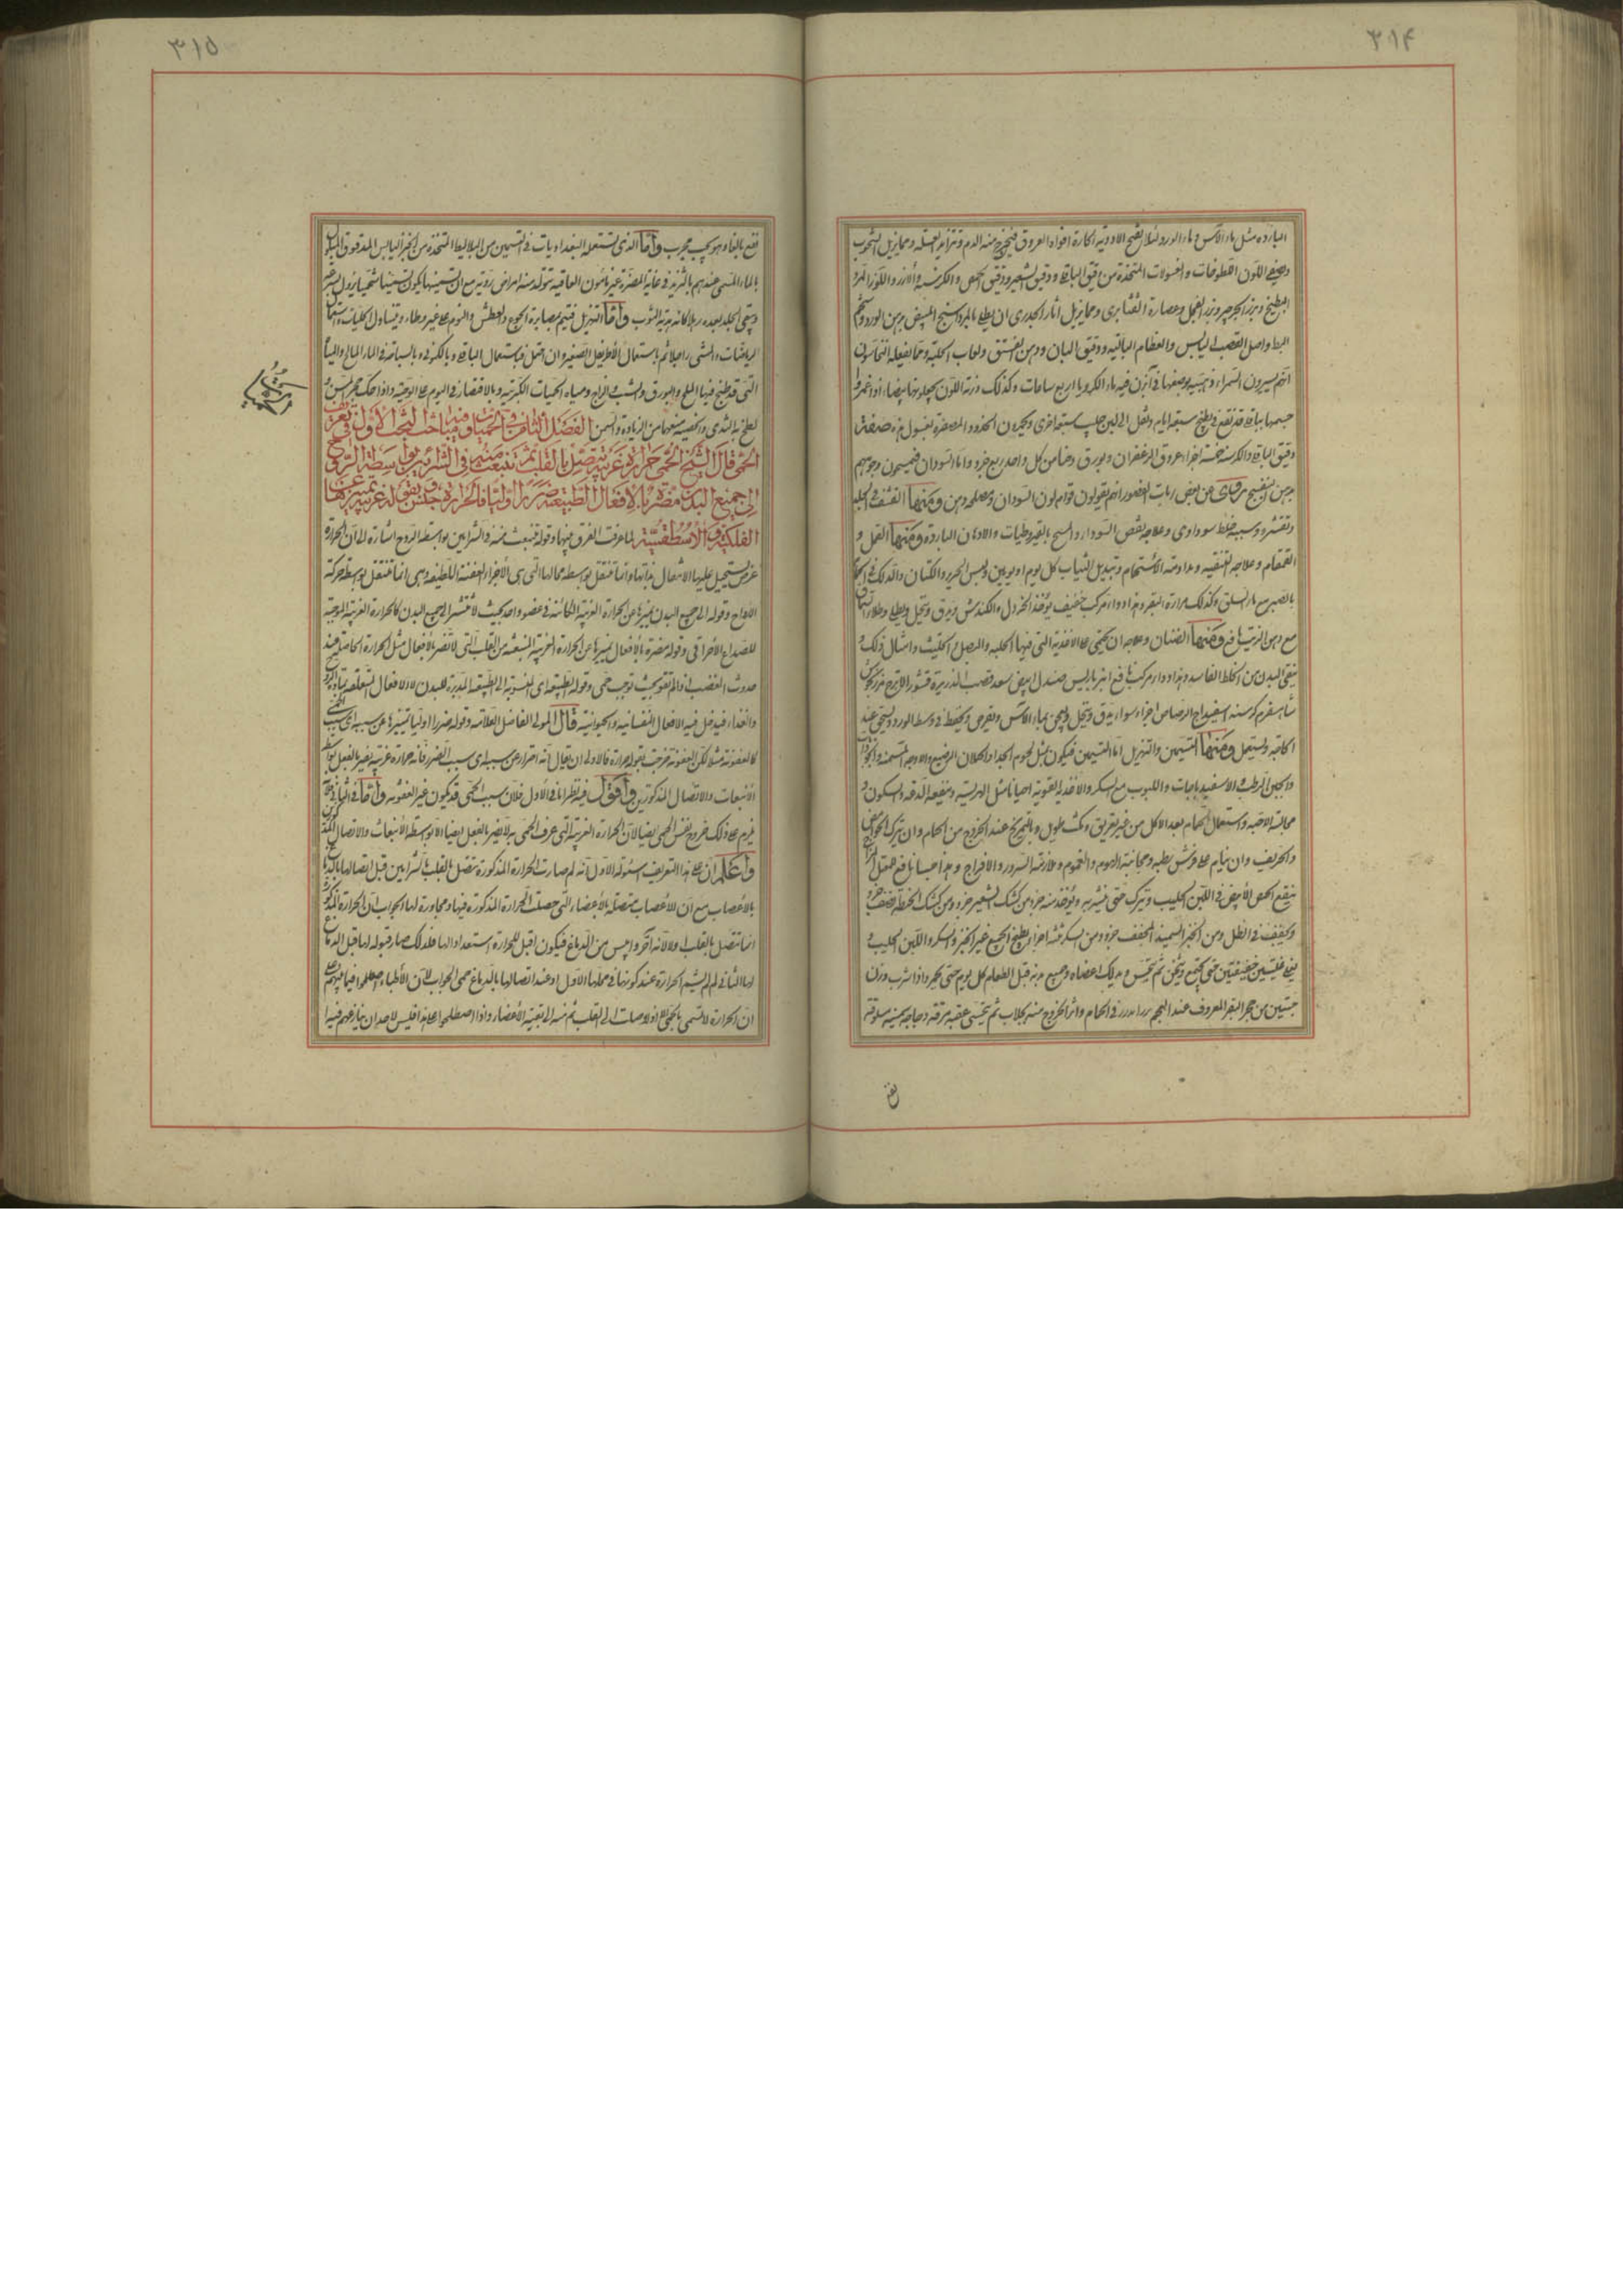 ٣١۴
البارده مثل ماء الآس وماء الورد لئلا يفتح الادوية الحارة افواه العروق فيخرج منه الدم وتتزايد العلة ومما يزيل الشحوب
ويصفى اللون اللطوخات والغسولات المتخذة من دقيق الباقلا ودقيق الشعير ودقيق الحمص والكرسنه والارز واللوز المر و
البطيخ وبزر الجرجير وبزر الفجل وعصارة القنابرى ومما يزيل اثار الجدرى ان يطلى بالمرداسنج المبيض بدهن الورد وشحم
البط واصل القصب اليابس والعظام الباليه ودقيق البان ودهن الفستق ولعاب الحلبة ومما يفعله النخاسون
انهم يسيرون السمراء ذهبية بوضعها فى آبزن فيه ماء الكرويا اربع ساعات وكذلك درية اللون يجعلونها بيضاء
جسمها بباقلا قد نقع فى بطيخ سبعة ايام ونقل الى لبن حليب سبعة اخرى ويحمرون الخدود المصفرة بغسول هذه صفته
دقيق الباقلا والكرسنه خمسة اجزاء عروق الزعفران وبورق وحنا من كل واحد ربع جزء واما السودان فيمسحون وجوههم
بدهن البنفسج وحكى عن بعض ربات القصور انهم يقولون قوام لون السودان ومنها التقشف فى الجلد
وتقشره وسببه خلط سوداوى وعلاجه نقص السوداء والمسح بالقيروطيات والادهان البارده ومنها القمل و
القمقام وعلاجه التنقيه ومداومة الاستحمام وتبديل الثياب كل يوم او يومين ولبس الحرير والكتان والدلك فى الحمام
بالصبر مع ماء السلق وكذلك مرارة البقر وهذا دواء مركب خفيف يؤخذ الخردل والكندش ويدق وينخل ويطلى
مع دهن الزيت نافع ومنها الصنان وعلاجه ان يحتمى من الاغذية التى فيها الحلبه والبصل والحلتيت وامثال ذلك و
ينقى البدن من الخلط الفاسد وهذا دواء مركب نافع انبرباريس صندل ابيض سعد قصب الذريرة قشور الاترج مرزنجوش
شاهسفرم كرسنه اسفيداج الرصاص اجزاء سواء يدق وينخل ويعجن بماء الآس ويقرص ويجفف فى وسط الورد ويسحق عند
الحاجه ويستعمل ومنها التسمين والتهزيل اما التسمين فيكون بمثل لحوم الجداء والحملان الرضيع والاوجه المسمنة
والجبن الرطب والاسفيدباجات واللبوب مع السكر والاغذية القوية احيانا مثل الهريسة وينفعه الدعة والسكون و
مجالسة الاحبه واستعمال الحمام بعد الاكل من غير تعريق ومكث طويل وبالتمريخ عند الخروج من الحمام وان يترك الحوامض
والحريف وان ينام على فرش رطبه ومجانبة الهموم والغموم وملازمة السرور والافراح وهذا حساء نافع
ينقع الحمص الابيض فى اللبن الحليب ويترك حتى يشربه ويؤخذ منه جزء من كشك الشعير جزء ومن كشك الحنطة نصف جزء و
يجفف فى الظل ومن الخبز السميذ المجفف جزء ومن السكر ثلثه اجزاء يطبخ الجميع غير الخبز والسكر واللبن الحليب و
يغلى غليتين خفيفتين حتى يجتمع ويثخن ثم يتحسى ويدلك اعضاه وجميع بدنه قبل الطعام كل يوم حتى يحمر واذا شرب وزن
حبتين من حجر البقر المعروف عند العجم فى الحمام واثر الخروج منه بجلاب ثم يتحسى عقبه مرقة دجاجه سمينه مسلوقة
نفع
٣١۵
نفع بالغا وهو عجيب مجرب واما الذى تستعمله البغداديات فى التسمين من البلاليط المتخذة من الخبز اليابس المدقوق المبلول
بالماء المسمى عندهم بالثريد فى غاية المضرة غير مامون العاقبه تتولد منه امراض رديه مع ان تسمينها يكون تسمينا شحميا يزول بسرعة
ويبقى الجلد بعده رهلا كانه هدبة الثوب واما التهزيل فيتم بمصابرة الجوع والعطش والنوم على غير وطاء وتناول الحليات واستعمال
الرياضات والمشى راجلا ثم باستعمال الاطريفل الصغير وان احتمل فباستعمال الباقلا وبالسباحة فى الماء المالح والمياه
التى قد طبخ فيها الملح والبورق والشب والزاج ومياه الحميات الكبريتية وبالاقتصار فى اليوم على الوجبة واذا حك حجر المسن و
لطخ به الثدى والخصية منعهما من الزيادة والسمن الفصل الثامن فى الحميات وفيه مباحث البحث الاول فى تعريف
الحمى قال الشيخ الحمى حرارة غريبة تتصل بالقلب ثم تنبعث منه فى الشرائين بواسطة الروح
الى جميع البدن مضرة بالافعال الطبيعية ضررا اوليا فالحرارة جنس وبقوله غريبة تميز عن
الفلكية والاسطقسية لما عرفت الفرق بينها وقوله تنبعث منه فى الشرائين بواسطة الروح اشارة الى ان الحرارة
عرض يستحيل عليها الانتقال بذاتها وانما تنتقل بواسطة محالها التى هى الاجزاء العفنة اللطيفة وهى انما تنتقل بواسطة حركة
الارواح وقوله الى جميع البدن يميزها عن الحرارة الغريبة الكائنة فى عضو واحد بحيث لا تنتشر الى جميع البدن كالحرارة الغريبة الموجبة
للصداع الاحتراقى وقوله مضرة بالافعال يميزها عن الحرارة الغريبة المنبعثه من القلب التى لا تضر بالافعال مثل الحرارة الحاصلة عند
حدوث الغضب اذا لم تقو بحيث توجب حمى وقوله الطبيعية اى المنسوبة الى الطبيعة المدبرة للبدن لا الافعال المتعلقة
والغذاء فيدخل فيه الافعال النفسانيه والحيوانيه قال المولى الفاضل العلامة وقوله ضررا اوليا يميزها عن سببه
كالعفونة مثلا لكن العفونة خرجت بقوله حرارة فالاولى ان يقال انه احتراز عن سبب سبب الضرر فانه حرارة غريبة تضر بالفعل بواسطة
الانبعاث والاتصال المذكورين واقول فيه نظر اما فى الاول فلان سبب الحمى قد يكون غير العفونه واما فى الثانى
يلزم على ذلك خروج نفس الحمى ايضا لان الحرارة الغريبة التى عرف الحمى بها لا تضر بالفعل ايضا الا بواسطة الانبعاث والاتصال
واعلم ان على هذا التعريف اسئولة الاول انه لم صارت الحرارة المذكورة تتصل بالقلب بالشرايين قبل اتصالها بالدماغ
بالاعصاب مع ان الاعصاب متصلة بالاعضاء التى حصلت الحرارة المذكورة فيها ومجاورة لها والجواب ان الحرارة
انما تتصل بالقلب اولا لانه احر وايبس من الدماغ فيكون اقبل للحرارة استعدادا لها فلذلك صار قبوله لها قبل الدماغ
لها الثانى لم لم يسم الحرارة عند كونها فى محلها الاول او عند اتصالها بالدماغ حمى الجواب لان الاطباء اصطلحوا فيما بينهم على
ان الحرارة لا تسمى بالحمى الا اذا وصلت الى القلب ثم منه الى بقية الاعضاء واذا اصطلحوا على هذا فليس لاحد ان ينازعهم فيه